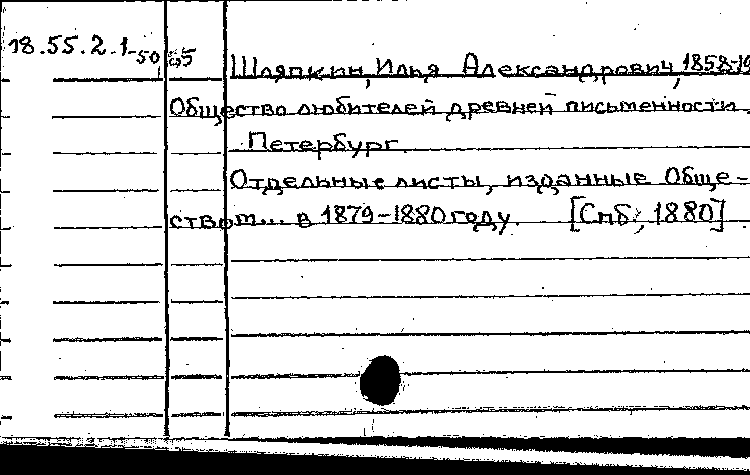 18.55.2.1-50
Шляпкин, Илья Александрович, 1858-19
Общество любителей древней письменности,
Петербург.
Отдельные листы, изданные Обще-
ством... в 1879-1880 году. [Спб., 1880]